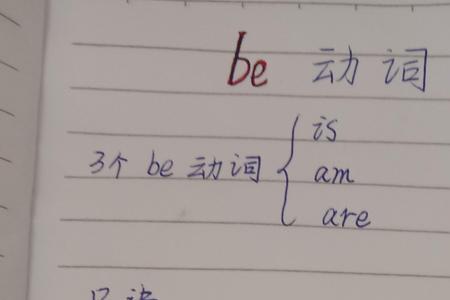 be 动词
is
3个 be 动词 { am
are